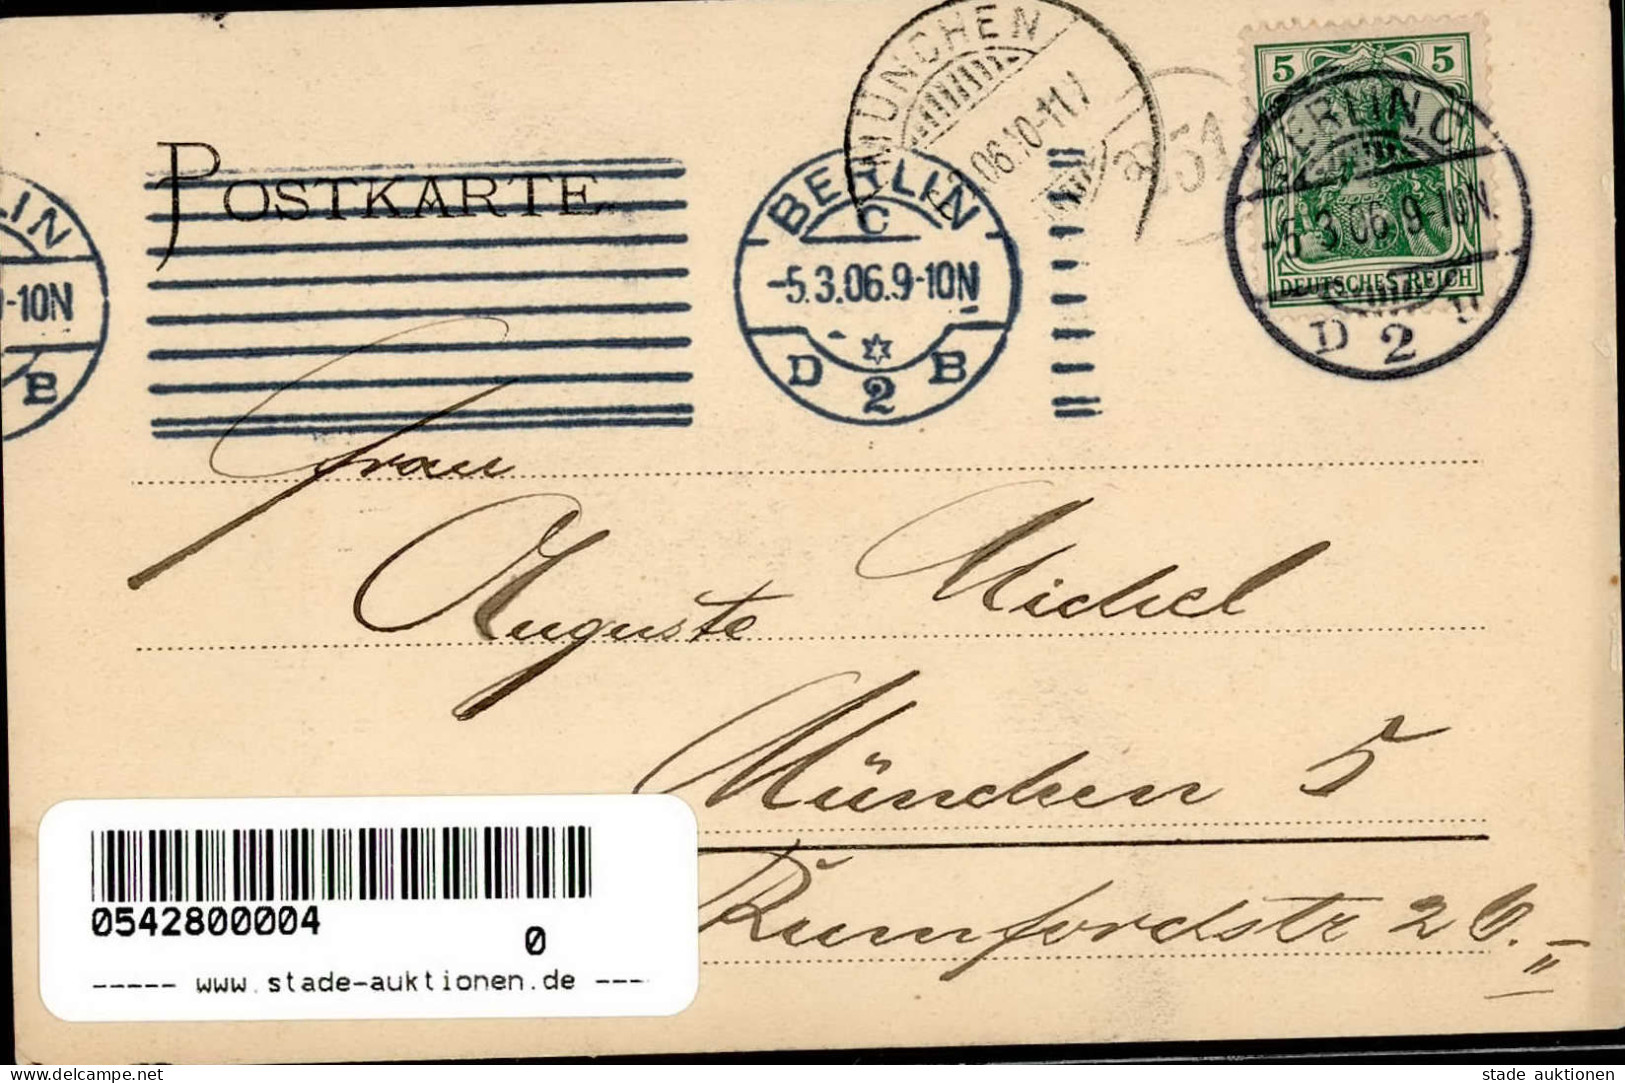 MÜNCHEN
06.10-11.V
5 5
BERLIN, C
-5.3.06.9-10N.
DEUTSCHES REICH
D 2
POSTKARTE
BERLIN
C
-5.3.06.9-10N
D 2 B
LIN
-10N
B
Frau
Auguste Michel
München 5
Rumfordstr 26.
0542800004
0
----- www.stade-auktionen.de ----
stade auktionen
www.delcampe.net